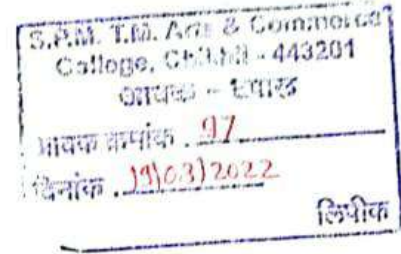 S.P.M. T.M. Arts & Commerce
College, Chikhli - 443201
आवक - शाखा
आवक क्रमांक . 97
दिनांक . 19/03/2022
लिपीक